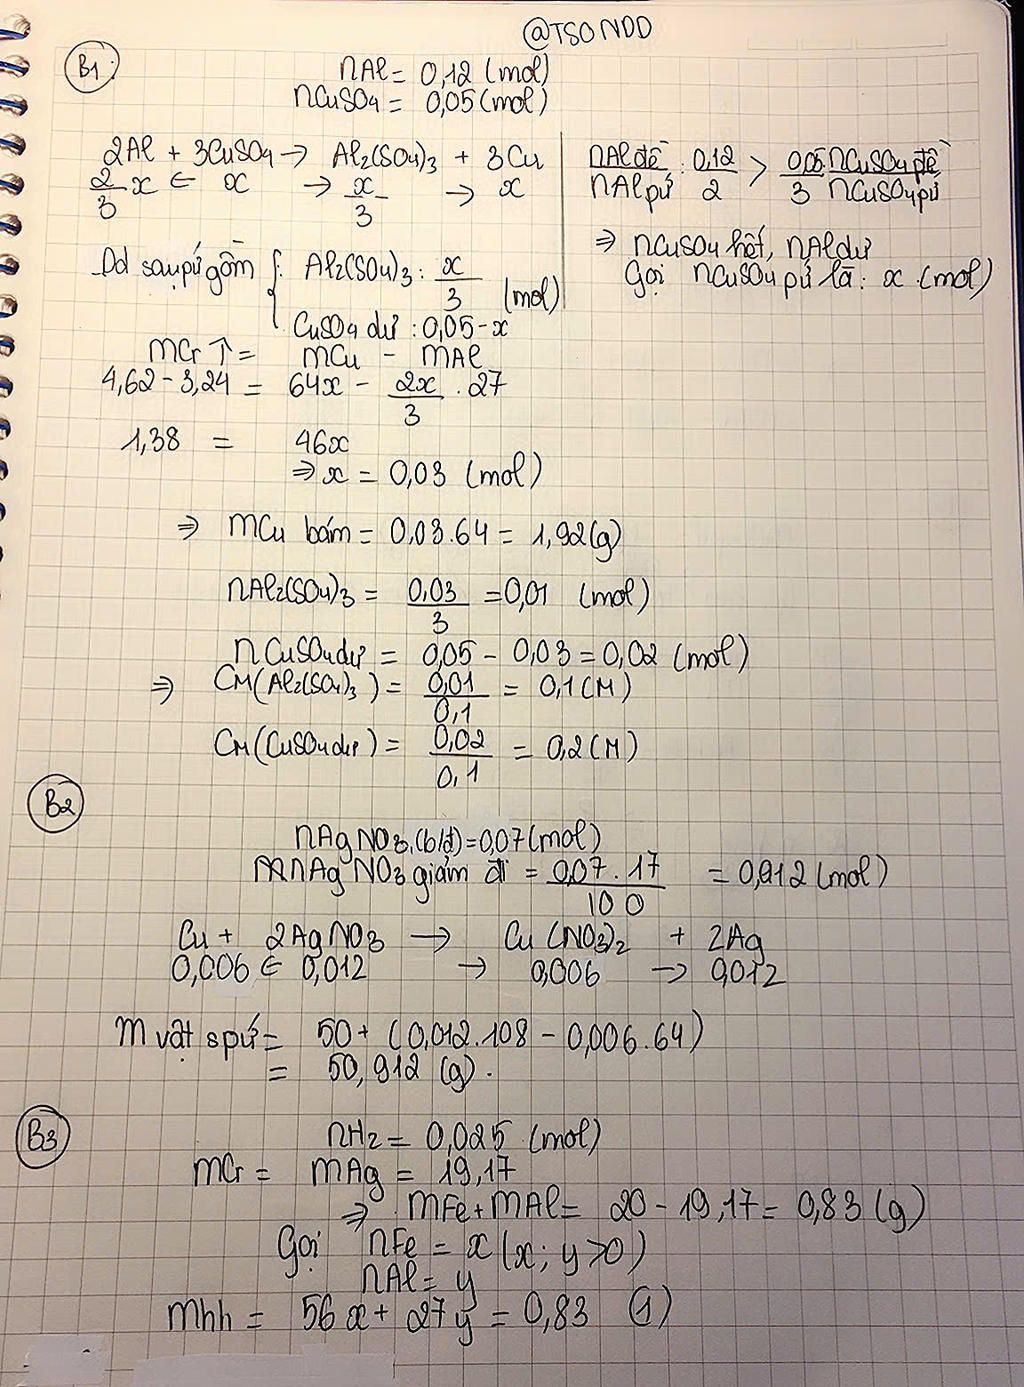 @TSONDD
B1
nAl = 0,12 (mol)
nCuSO4 = 0,05 (mol)
2Al + 3CuSO4 → Al2(SO4)3 + 3Cu
2/3 x ← x → x/3 → x
Dd sau pứ gồm { Al2(SO4)3 : x/3 (mol)
CuSO4 dư : 0,05-x
nAl đề / nAl pứ : 0,12/2 > 0,05/3 nCuSO4 đề / nCuSO4 pứ
⇒ nCuSO4 hết, nAl dư
Gọi nCuSO4 pứ là : x (mol)
mCr ↑ = mCu - mAl
4,62 - 3,24 = 64x - 2x/3 . 27
1,38 = 46x
⇒ x = 0,03 (mol)
⇒ mCu bám = 0,03.64 = 1,92 (g)
nAl2(SO4)3 = 0,03/3 = 0,01 (mol)
nCuSO4 dư = 0,05 - 0,03 = 0,02 (mol)
⇒ CM(Al2(SO4)3) = 0,01/0,1 = 0,1 (M)
CM(CuSO4 dư) = 0,02/0,1 = 0,2 (M)
B2
nAgNO3 (bđ) = 0,07 (mol)
nAgNO3 giảm đi = 0,07.17/100 = 0,012 (mol)
Cu + 2AgNO3 → Cu(NO3)2 + 2Ag
0,006 ← 0,012 → 0,006 → 0,012
m vật s pứ = 50 + (0,012.108 - 0,006.64)
= 50,912 (g).
B3
nH2 = 0,025 (mol)
mCr = mAg = 19,17
⇒ mFe + mAl = 20 - 19,17 = 0,83 (g)
Gọi nFe = x (x; y > 0)
nAl = y
mhh = 56x + 27y = 0,83 (1)